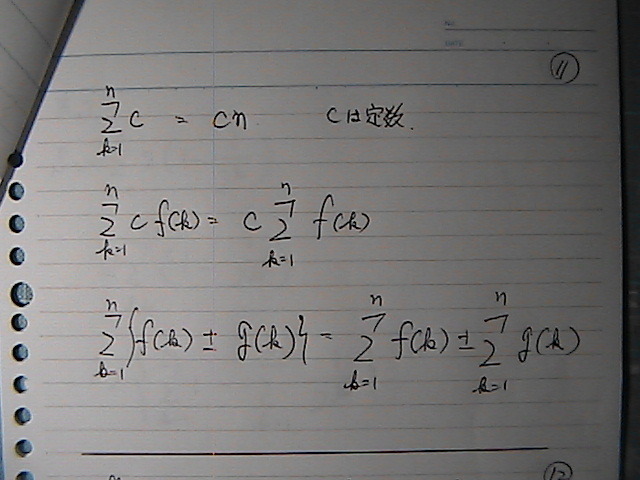 NO.
DATE
⑪
\sum_{k=1}^{n} c = cn cは定数.
\sum_{k=1}^{n} c f(k) = c \sum_{k=1}^{n} f(k)
\sum_{k=1}^{n} \{ f(k) ± g(k) \} = \sum_{k=1}^{n} f(k) ± \sum_{k=1}^{n} g(k)